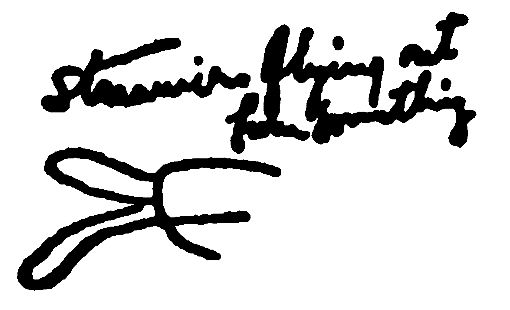 streamers flying out
from something